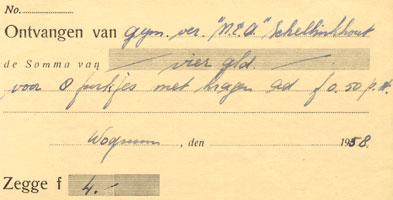 No.
Ontvangen van gym. ver. "N.E.A." Schellinkhout
de Somma van vier gld.
voor 8 parkjes met kragen ad f 0.50 p. st.
Wognum, den 1958.
Zegge f 4.-